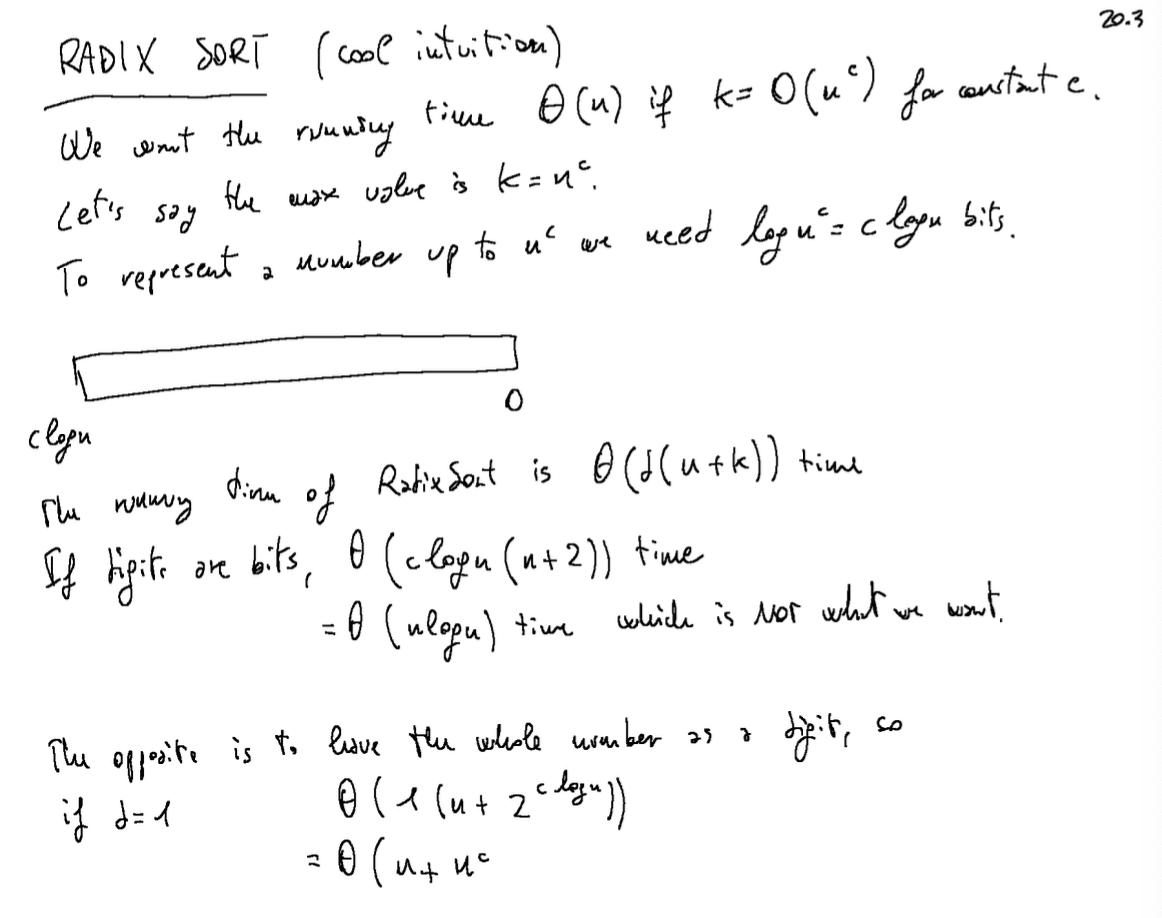 20.3
RADIX SORT (cool intuition)
We want the running time Θ(n) if k = O(n^c) for constant c.
Let's say the max value is k = n^c.
To represent a number up to n^c we need log n^c = c log n bits.
0
c log n
The running time of RadixSort is Θ(d(n+k)) time
If digits are bits, Θ(c log n (n+2)) time
= Θ(n log n) time which is NOT what we want.
The opposite is to have the whole number as a digit, so
if d=1 Θ(1(n+2^{c log n}))
= Θ(n+n^c